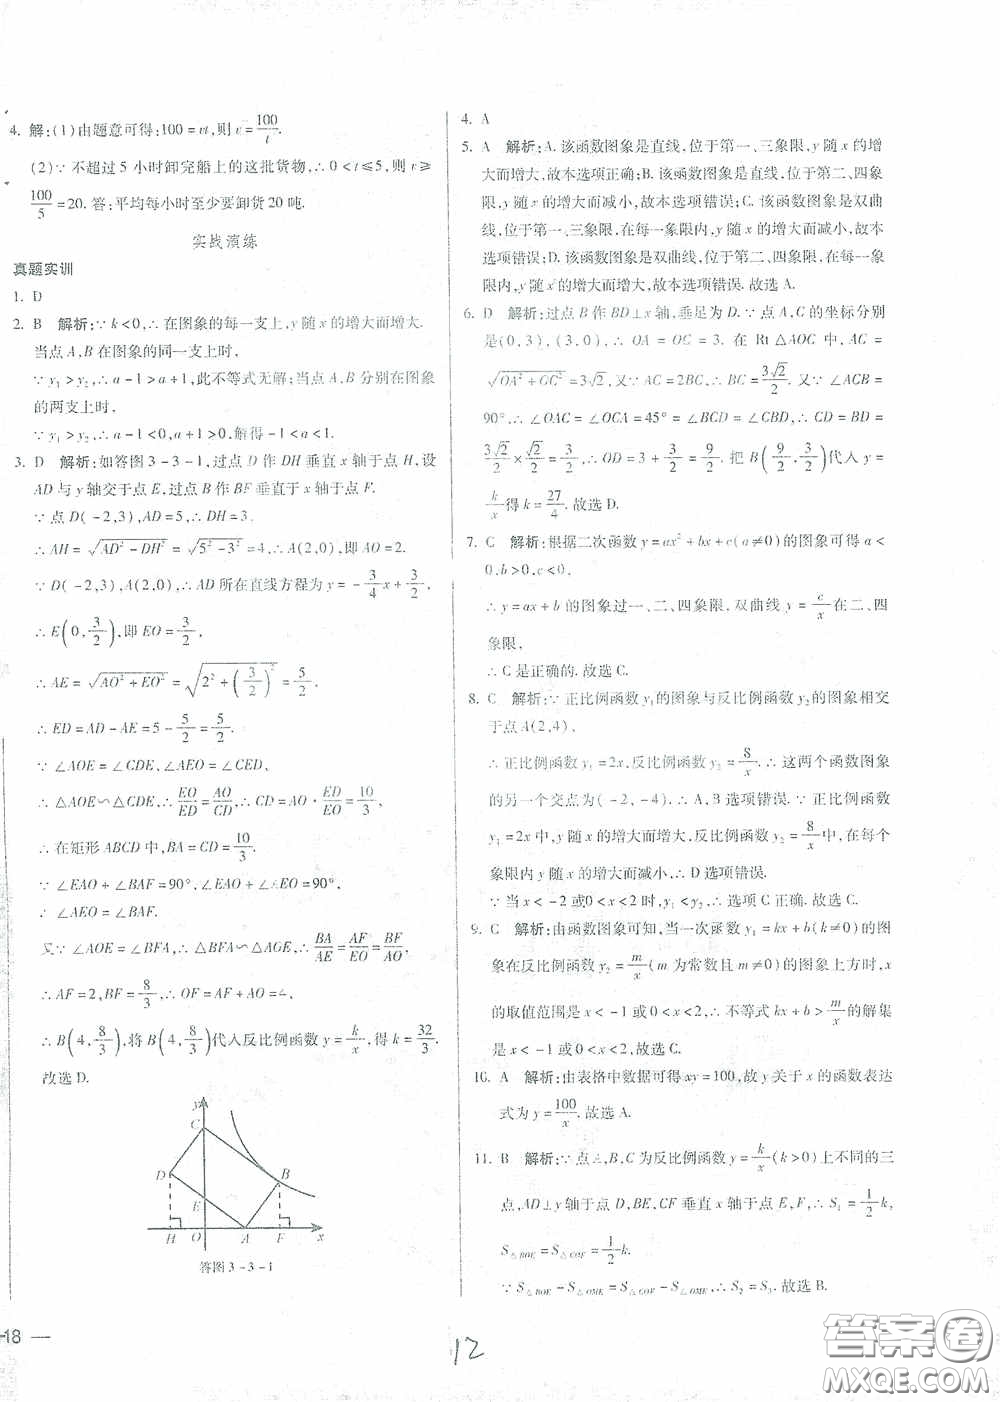 4. 解:(1)由题意可得:100=vt,则 v=100/t.
(2)∵ 不超过 5 小时卸完船上的这批货物,∴ 0<t≤5,则 v≥
100/5=20. 答:平均每小时至少要卸货 20 吨.
实战演练
真题实训
1. D
2. B 解析:∵ k<0,∴ 在图象的每一支上,y 随 x 的增大而增大.
当点 A,B 在图象的同一支上时,
∵ y₁>y₂,∴ a-1>a+1,此不等式无解;当点 A,B 分别在图象
的两支上时,
∵ y₁>y₂,∴ a-1<0,a+1>0,解得-1<a<1.
3. D 解析:如答图 3-3-1,过点 D 作 DH 垂直 x 轴于点 H,设
AD 与 y 轴交于点 E,过点 B 作 BF 垂直于 x 轴于点 F.
∵ 点 D(-2,3),AD=5,∴ DH=3.
∴ AH=√(AD²-DH²)=√(5²-3²)=4,∴ A(2,0),即 AO=2.
∵ D(-2,3),A(2,0),∴ AD 所在直线方程为 y=-3/4x+3/2,
∴ E(0,3/2),即 EO=3/2,
∴ AE=√(AO²+EO²)=√(2²+(3/2)²)=5/2,
∴ ED=AD-AE=5-5/2=5/2.
∵ ∠AOE=∠CDE,∠AEO=∠CED,
∴ △AOE∽△CDE,∴ EO/ED=AO/CD,∴ CD=AO·ED/EO=10/3,
∴ 在矩形 ABCD 中,BA=CD=10/3.
∵ ∠EAO+∠BAF=90°,∠EAO+∠AEO=90°,
∴ ∠AEO=∠BAF.
又∵ ∠AOE=∠BFA,∴ △BFA∽△AOE,∴ BA/AE=AF/EO=BF/AO,
∴ AF=2,BF=8/3,∴ OF=AF+AO=4,
∴ B(4,8/3),将 B(4,8/3)代入反比例函数 y=k/x,得 k=32/3.
故选 D.
y
C
D
B
E
H O A F x
答图 3-3-1
4. A
5. A 解析:A. 该函数图象是直线,位于第一、三象限,y 随 x 的增
大而增大,故本选项正确;B. 该函数图象是直线,位于第二、四象
限,y 随 x 的增大而减小,故本选项错误;C. 该函数图象是双曲
线,位于第一、三象限,在每一象限内,y 随 x 的增大而减小,故本
选项错误;D. 该函数图象是双曲线,位于第二、四象限,在每一象
限内,y 随 x 的增大而增大,故本选项错误.故选 A.
6. D 解析:过点 B 作 BD⊥x 轴,垂足为 D.∵ 点 A,C 的坐标分别
是(0,3),(3,0),∴ OA=OC=3. 在 Rt△AOC 中,AC=
√(OA²+OC²)=3√2,又∵ AC=2BC,∴ BC=3√2/2,又∵ ∠ACB=
90°,∴ ∠OAC=∠OCA=45°=∠BCD=∠CBD,∴ CD=BD=
3√2/2×√2/2=3/2,∴ OD=3+3/2=9/2. 把 B(9/2,3/2)代入 y=
k/x得 k=27/4. 故选 D.
7. C 解析:根据二次函数 y=ax²+bx+c(a≠0)的图象可得 a<
0,b>0,c<0,
∴ y=ax+b 的图象过一、二、四象限,双曲线 y=c/x在二、四
象限,
∴ C 是正确的.故选 C.
8. C 解析:∵ 正比例函数 y₁的图象与反比例函数 y₂的图象相交
于点 A(2,4),
∴ 正比例函数 y₁=2x,反比例函数 y₂=8/x.∴ 这两个函数图象
的另一个交点为(-2,-4).∴ A,B 选项错误.∵ 正比例函数
y₁=2x 中,y 随 x 的增大而增大,反比例函数 y₂=8/x中,在每个
象限内,y 随 x 的增大而减小,∴ D 选项错误.
∵ 当 x<-2 或 0<x<2 时,y₁<y₂,∴ 选项 C 正确.故选 C.
9. C 解析:由函数图象可知,当一次函数 y₁=kx+b(k≠0)的图
象在反比例函数 y₂=m/x(m 为常数且 m≠0)的图象上方时,x
的取值范围是 x<-1 或 0<x<2,∴ 不等式 kx+b>m/x的解集
是 x<-1 或 0<x<2,故选 C.
10. A 解析:由表格中数据可得 xy=100,故 y 关于 x 的函数表达
式为 y=100/x.故选 A.
11. B 解析:∵ 点 A,B,C 为反比例函数 y=k/x(k>0)上不同的三
点,AD⊥y 轴于点 D,BE,CF 垂直 x 轴于点 E,F,∴ S₁=1/2k,
S△BOE=S△COF=1/2k.
∵ S△BOE-S△OME=S△COF-S△OME,∴ S₂=S₃.故选 B.
18 —
12
答案卷
MXQE.COM